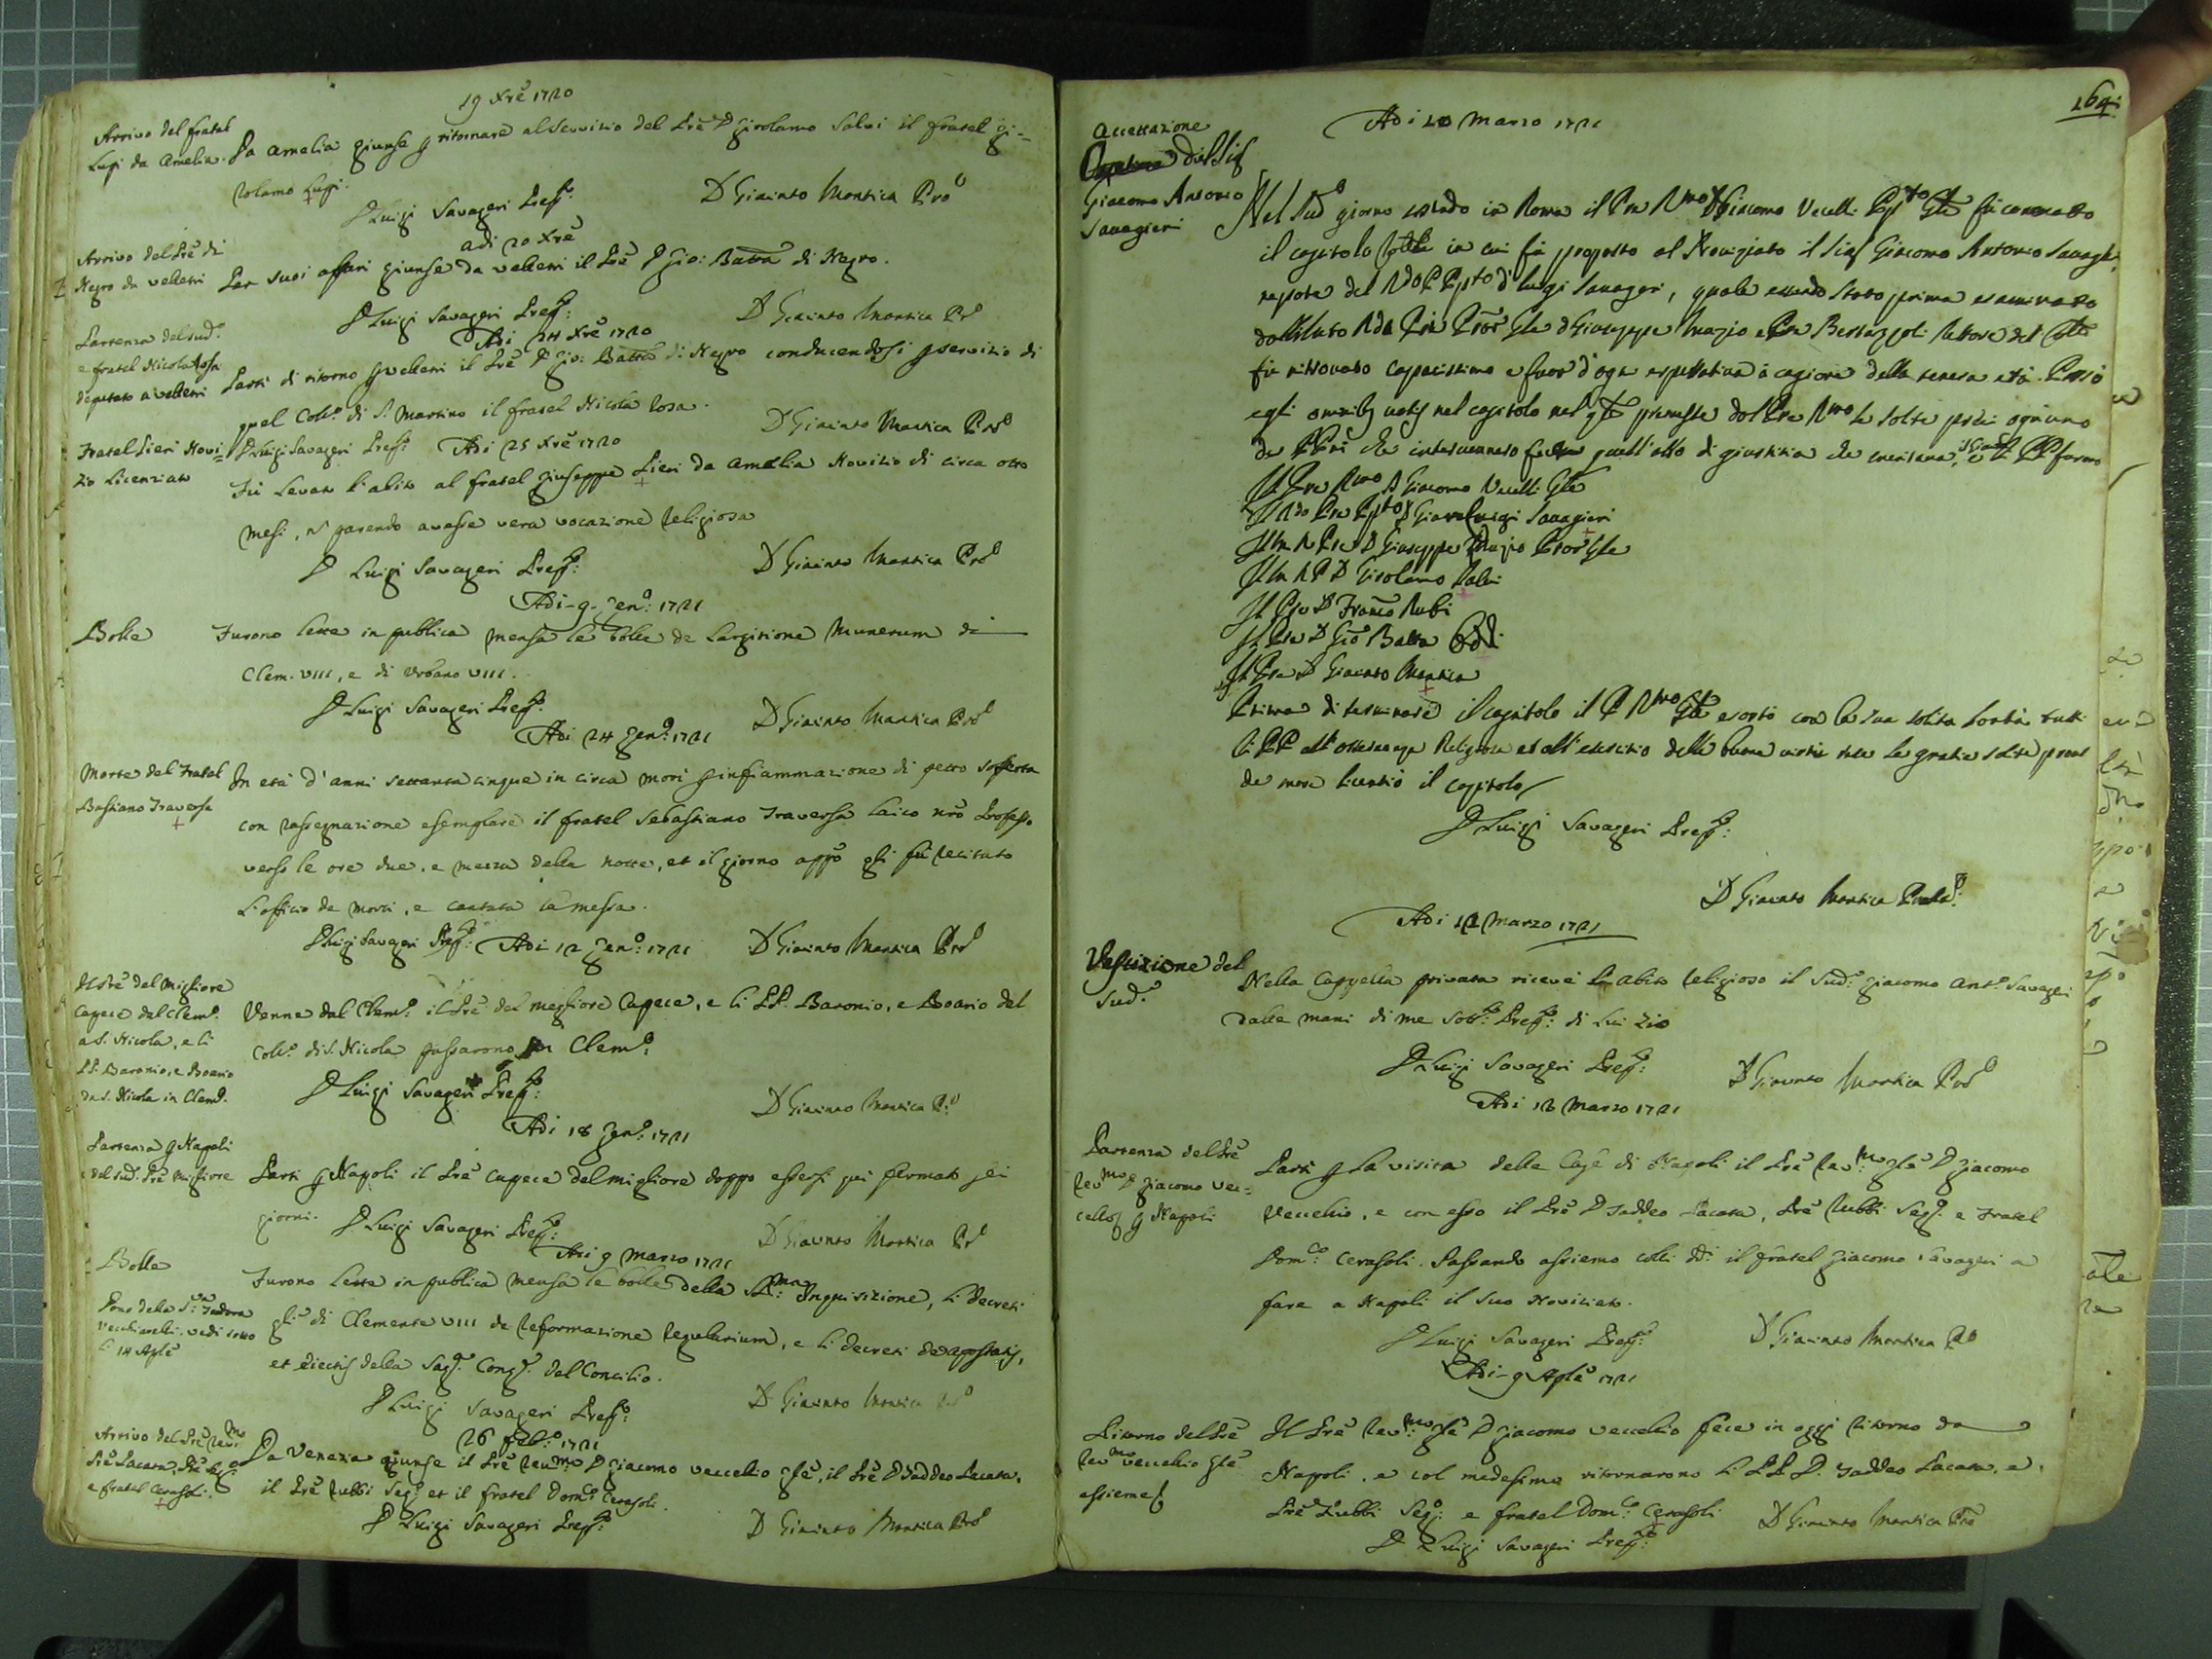 19 Xrē 1720
Arrivo del fratel
Lupi da Amelia.
Da Amelia giunse p ritornare al servizio del Prē D Girolamo Salvi il fratel Gi=
rolamo Lupi.
D Luigi Savageri Prepto:
D Giacinto Mantica Pro
adi 20 Xrē
Arrivo del Prē di
Negro da Velletri
Per suoi affari giunse da Velletri il Prē D Gio: Batta di Negro.
D Luigi Savageri Prepto:
D Giacinto Mantica Pro
Adi 24 Xrē 1720
Partenza del sudo.
e fratel Nicola Rosa
deputato a Velletri
Partì di ritorno p Velletri il Prē D Gio: Batta di Negro conducendosi p servizio di
quel Collo. di S. Martino il fratel Nicola Rosa.
D Giacinto Mantica Pro
D Luigi Savageri Prepto: Adi 25 Xrē 1720
Fratel Pieri Novi=
zio licenziato
Fù levato l'abito al fratel Giuseppe Pieri da Amelia Novizio di circa otto
mesi, ñ parendo avesse vera vocazione Religiosa
D Luigi Savageri Prepto:
D Giacinto Mantica Pro
Adi-9-Geno: 1721
Bolle
Furono lette in publica mensa le bolle de largitione Munerum di
Clem. VIII, e di Urbano VIII.
D Luigi Savageri Prepto:
D Giacinto Mantica Pro
Adi 24 Geno: 1721
Morte del Fratel
Bastiano Traversa
In età d'anni settanta cinque in circa morì p infiammazione di petto sofferta
con rassegnazione esemplare il fratel Sebastiano Traversa laico nrō Professo
verso le ore due, e mezza della notte, et il giorno appo gli fù recitato
l'officio de morti, e cantata la messa.
D Luigi Savageri Prepto: Adi 12 Geno: 1721
D Giacinto Mantica Pro
Il Prē del Migliore
Capece dal Clemo.
a S. Nicola, e li
PP. Baronio, e Boario
da S. Nicola in Clemo.
Venne dal Clemo: il Prē del megliore Capece, e li PP. Baronio, e Boario del
Collo. di S. Nicola passarono in Clemo:
D Luigi Savageri Prepto:
D Giacinto Mantica Pro
Adi 18 Geno: 1721
Partenza p Napoli
del sudo. Prē Migliore
Partì p Napoli il Prē Capece del migliore doppo essersi qui fermato sei
giorni.
D Luigi Savageri Prepto:
D Giacinto Mantica Pro
Adi 9 Marzo 1721
Bolla
Furono lette in publica mensa le bolle della SSma: Inquisizione, li decreti
gli di Clemente VIII de reformazione Regularium, e li decreti de apostatis,
et eiectis della Sagra. Congne. del Concilio.
Dono della Sra: Isidora
Vecchiarelli. vedi sotto
li 14 Aple
D Luigi Savageri Prepto:
D Giacinto Mantica Pro
26 Febo: 1721
Arrivo del Prē Revmo
Prē Lacara, Prē Sego
e fratel Cerasoli.
Da Venezia giunse il Prē Revmo: D Giacomo Vecchio Gle, il Prē D Taddeo Lacara,
il Prē Rubbi Sego: et il fratel Domco: Cerasoli.
D Luigi Savageri Prepto:
D Giacinto Mantica Pro
164.
Adi 10 Marzo 1721
Accettazione
del Sig
Giacomo Antonio
Savagieri
Nel sudo giorno essendo in Roma il Pre Rmo D Giacomo Vecelli Gle fù connesso
il capitolo in cui fù proposto al Noviziato il Sig Giacomo Antonio Savagi,
nepote del Rdo P Ppto D Luigi Savageri, quale essendo stato prima esaminato
D Giuseppe Muzio e Pre Rettore del
fù ritrovato capacissimo e fuor d'ogni espettativa à cagione della tenera età. Passò
egli omnibus votis nel capitolo premesse dal Pre Rmo le solite preci ogn'uno
de PPri che intervennero fecero quell'atto di giustitia che meritava, e li PP furno
Il Pre Rmo D Giacomo Vecelli Gle
Il Rdo Pre Ppto D Luigi Savagieri
Il M R Pre D Giuseppe Muzio Pror Gle
Il M R P D Girolamo Salvi
Il Pre D Franco Rubi
Il Pre D Gio Batta
Il Pre D Giacinto Mantica
Prima di terminare il capitolo il P Rmo Gle esortò con la sua solita bontà tutti
li PP all'osservanza Religiosa et all'esercitio delle buone virtù le gratie solite
de more licentiò il capitolo
D Luigi Savageri Prepto:
D Giacinto Mantica
Adi 12 Marzo 1721
Vestizione del
sudo.
Nella Cappella privata ricevè l'abito Religioso il sudo: Giacomo Anto. Savageri
dalle mani di me sotto: Prepto: di lui Zio
D Luigi Savageri Prepto:
D Giacinto Mantica Pro
Adi 18 Marzo 1721
Partenza del Prē
Revmo D Giacomo Vec=
p Napoli
Partì p la visita delle Case di Napoli il Prē Revmo: Gle D Giacomo
Vecchio, e con esso il Prē D Taddeo Lacara, Prē Rubbi Sego. e Fratel
Domco: Cerasoli. Passando assiemo colli dti il fratel Giacomo Savageri a
fare a Napoli il suo Noviziato.
D Luigi Savageri Prepto:
D Giacinto Mantica Pro
Adi-9 Aple 1721
Ritorno del Prē
Revmo Vecchio Gle
Il Prē Revmo: Gle D Giacomo Vecchio fece in oggi ritorno da
Napoli, e col medesimo ritornarono li PP. D. Taddeo Lacara, e
Prē Rubbi Sego: e fratel Domco: Cerasoli
D Giacinto Mantica Pro
D Luigi Savageri Prepto: